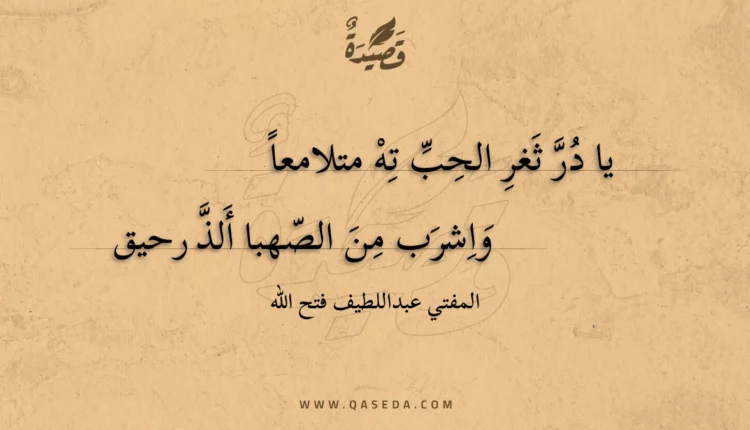 قَصِيْدَةٌ
يا دُرَّ ثَغرِ الحِبِّ تِهْ متلامعاً
وَاِشرَب مِنَ الصّهبا أَلذَّ رحيق
المفتي عبداللطيف فتح الله
WWW.QASEDA.COM